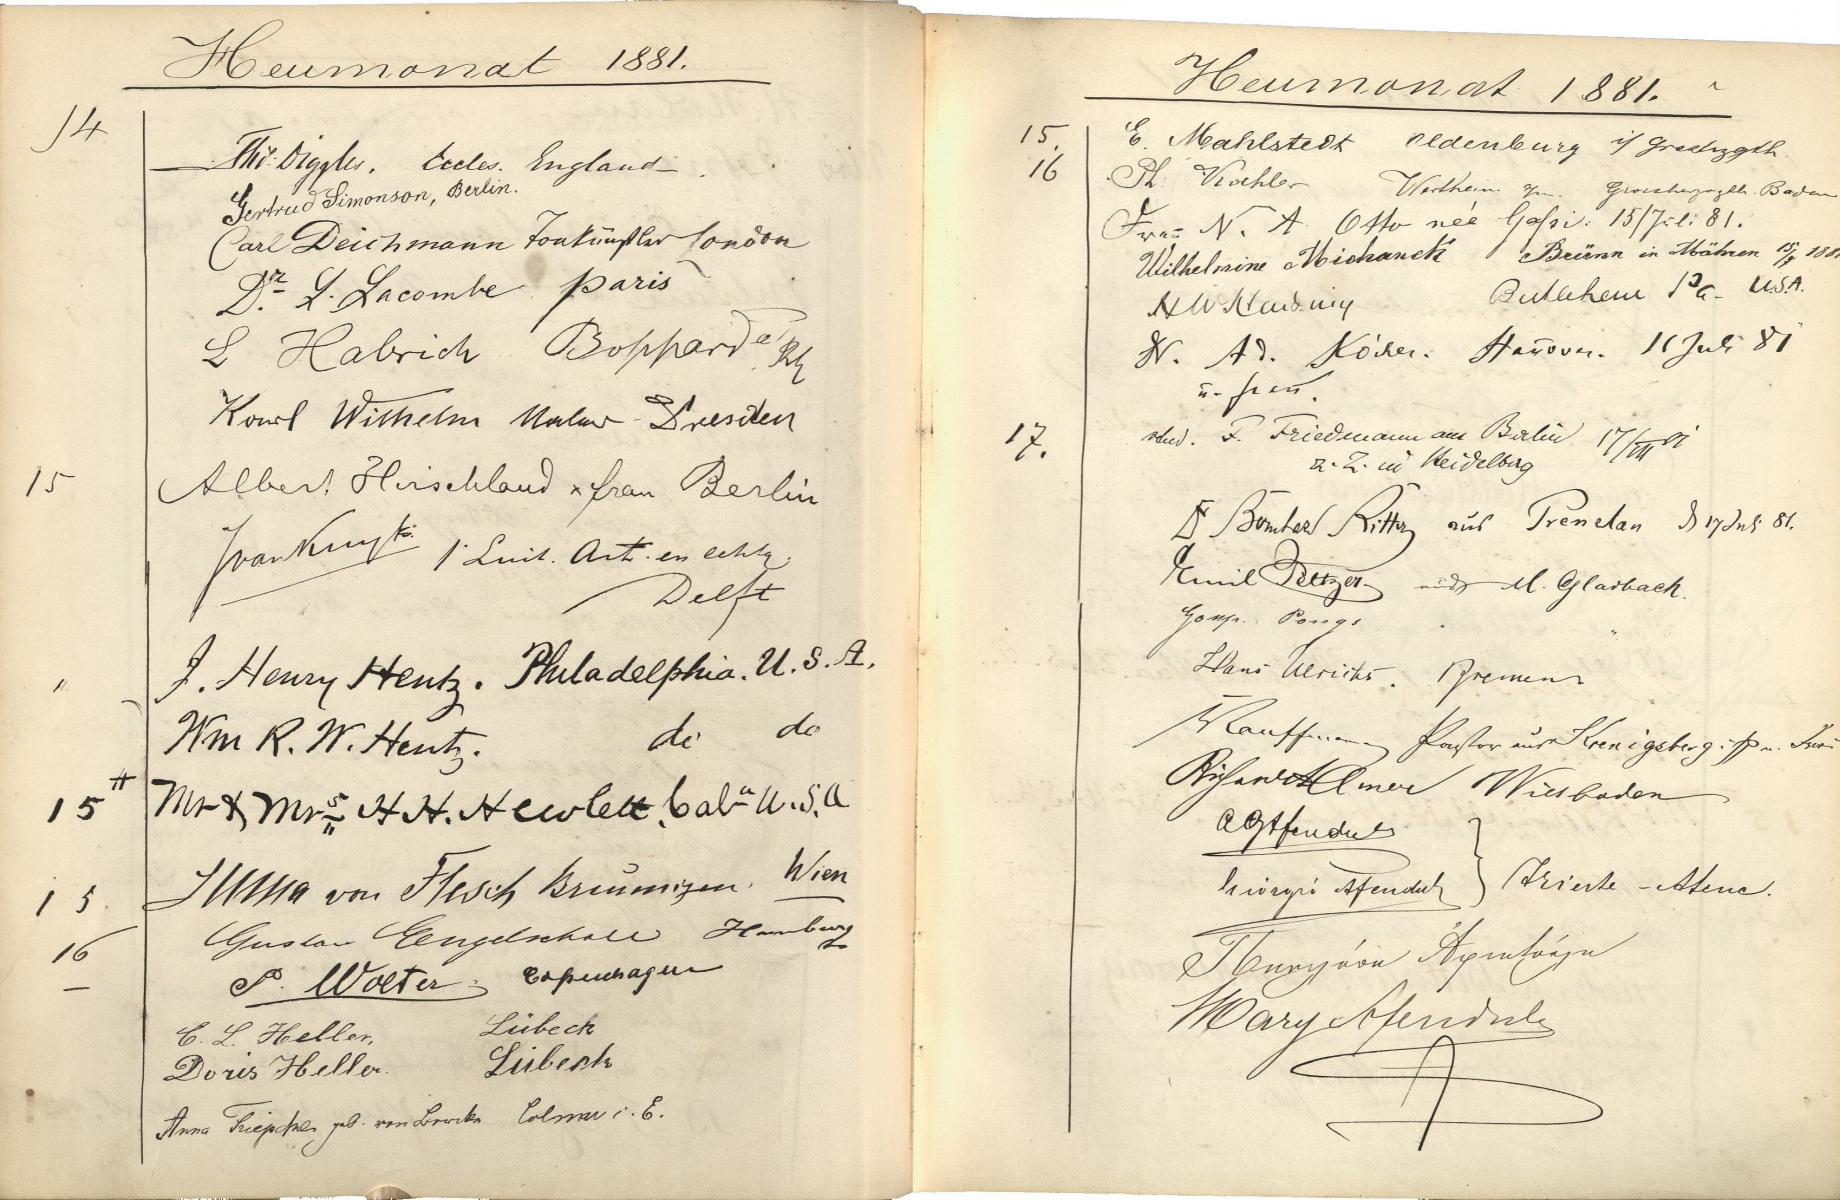 Heumonat 1881.
14
Thos: Diggles. Eccles. England
Gertrud Simonson, Berlin.
Carl Deichmann Tonkünstler London
Dr. L. Lacombe Paris
L Habrich Boppard a/Rh
Karl Wilhelm Maler Dresden
15 Albert Hirschland & frau Berlin
1e Luit. Art. en echtg.
Delft
" J. Henry Hentz. Philadelphia. U.S.A.
Wm R. W. Hentz. do do
15" Mr & Mrs H H. Hewlett. Cala U.S.A
15 von Flesch Wien
16 Gustav Engelschall Hamburg
P. Wolter Copenhagen
E. L. Heller, Lübeck
Doris Heller Lübeck
Anna geb. von Colmar i. E.
Heumonat 1881.
15. E. Mahlstedt Oldenburg i/ Grosshzgth.
16 Ph. Koehler Wertheim a/m. Grossherzogth. Baden
Frau N. A. Otto neé 15/Juli 81.
Wilhelmine Michanek Brünn in Mähren 15/7 1881
H W Harding Bethlehem Pa. U.S.A.
Ad. Köcher. Hannover. 16 Juli 81
u. frau.
17. stud. F. Friedmann aus Berlin 17/VII 81
z. Z. in Heidelberg
Ritter aus Prenzlau d 17 Juli 81.
Emil Peltzer aus M. Gladbach.
Pongs " "
Hans Ulrichs. Bremen
Kauffmann Pastor aus
Richard Elmer Wiesbaden
A G Afenduli
Giorgio Afenduli } Trieste - Atene.
Mary Afenduli